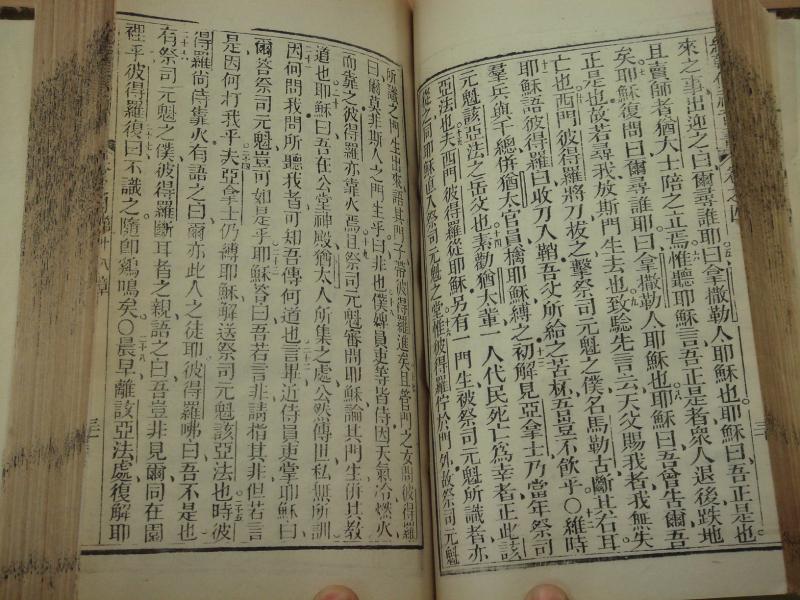 來之事出迎之曰爾尋誰耶曰拿撒勒人耶穌也耶穌曰吾正是也
且賣師者猶大士陪之立焉惟聽耶穌言吾正是者衆人退後跌地
矣耶穌復問曰爾尋誰耶曰拿撒勒人耶穌也耶穌曰吾曾告爾吾
正是也故若尋我放斯門生去也致驗先言云天父賜我者我無失
亡也西門彼得羅將刀拔之擊祭司元魁之僕名馬勒古斷其右耳
耶穌語彼得羅曰收刀入鞘吾父所給之苦杯吾豈不飲乎〇維時
羣兵與千總併猶太官員擒耶穌縛之初解見亞拿士乃當年祭司
元魁該亞法之岳父也素勸猶太輩一人代民死亡爲幸者正此該
亞法也夫西門彼得羅從耶穌另有一門生被祭司元魁所識者亦
從之同耶穌直入祭司元魁之堂惟彼得羅佇於門外故祭司元魁
所識之門生出來語其門子帶彼得羅進矣且管門之女問彼得羅
曰爾莫非斯人之門生乎曰非也僕婢員吏等皆侍因天氣冷燃火
而靠之彼得羅亦靠火焉且祭司元魁審問耶穌論其門生併其教
道也耶穌曰吾在公堂神殿猶太人所集之處公然傳世私無所訓
因何問我問所聽我者可知吾傳何道也言畢近侍員吏掌耶穌曰
爾答祭司元魁豈可如是乎耶穌答曰吾若言非請指其非但若言
是因何打我乎夫亞拿士仍縛耶穌解送祭司元魁該亞法也時彼
得羅尚侍靠火有語之曰爾亦此人之徒耶彼得羅咈曰吾不是也
有祭司元魁之僕彼得羅斷耳者之親語之曰吾豈非見爾同在園
裡乎彼得羅復曰不識之隨卽鷄鳴矣〇晨早離該亞法處復解耶